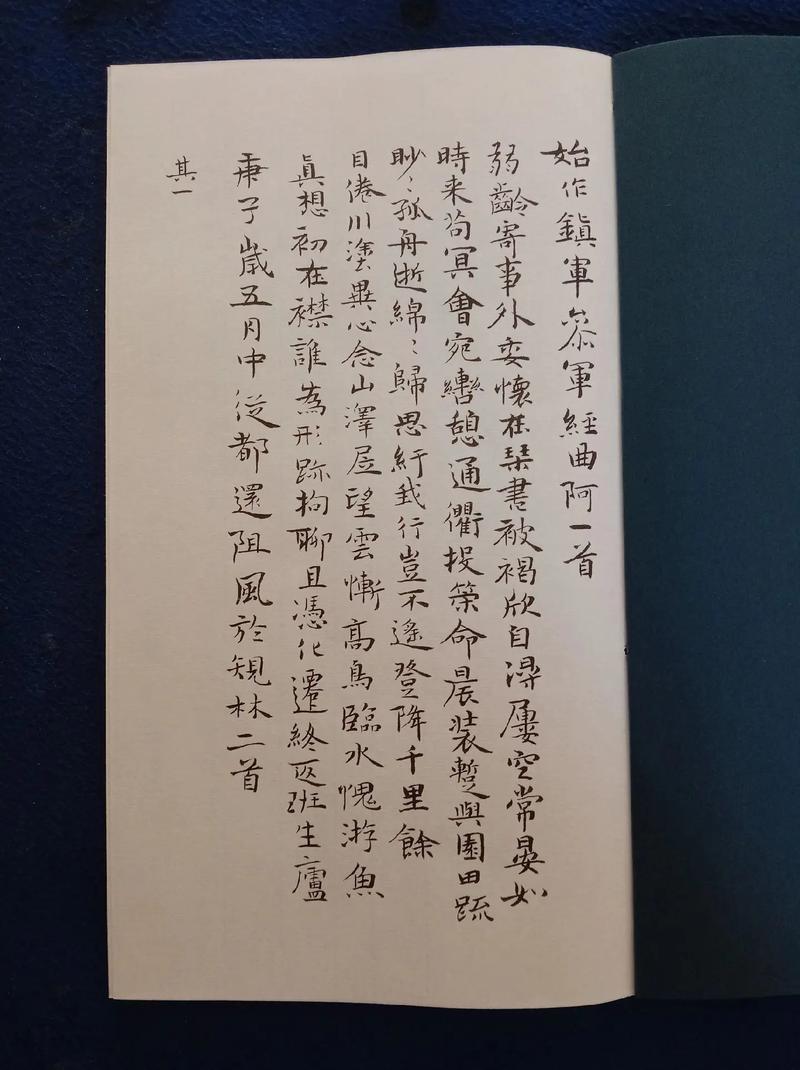 始作鎮軍叅軍經曲阿一首
弱齡寄事外委懷在琹書被褐欣自得屢空常晏如
時来苟冥會宛轡憩通衢投策命晨装蹔與園田疏
眇〻孤舟逝綿〻歸思紆我行豈不遙登降千里餘
目倦川塗異心念山澤居望雲慚高鳥臨水愧游魚
真想初在襟誰為形跡拘聊且憑化遷終返班生廬
庚子歲五月中從都還阻風於規林二首
其一